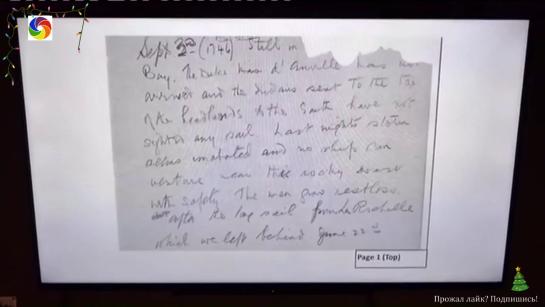 Sept 3rd (1746) Still in
Bay. The Dukes has d'Anville has not
arrived and the Indians sent to the
of the headlands to the South have not
sighted any sail. Last nights storm
seems unabated and no ships can
venture near this rocky coast
with safety. The men grow restless
after the long sail from La Rochelle
which we left behind June 22nd
Page 1 (Top)
Прожал лайк? Подпишись!